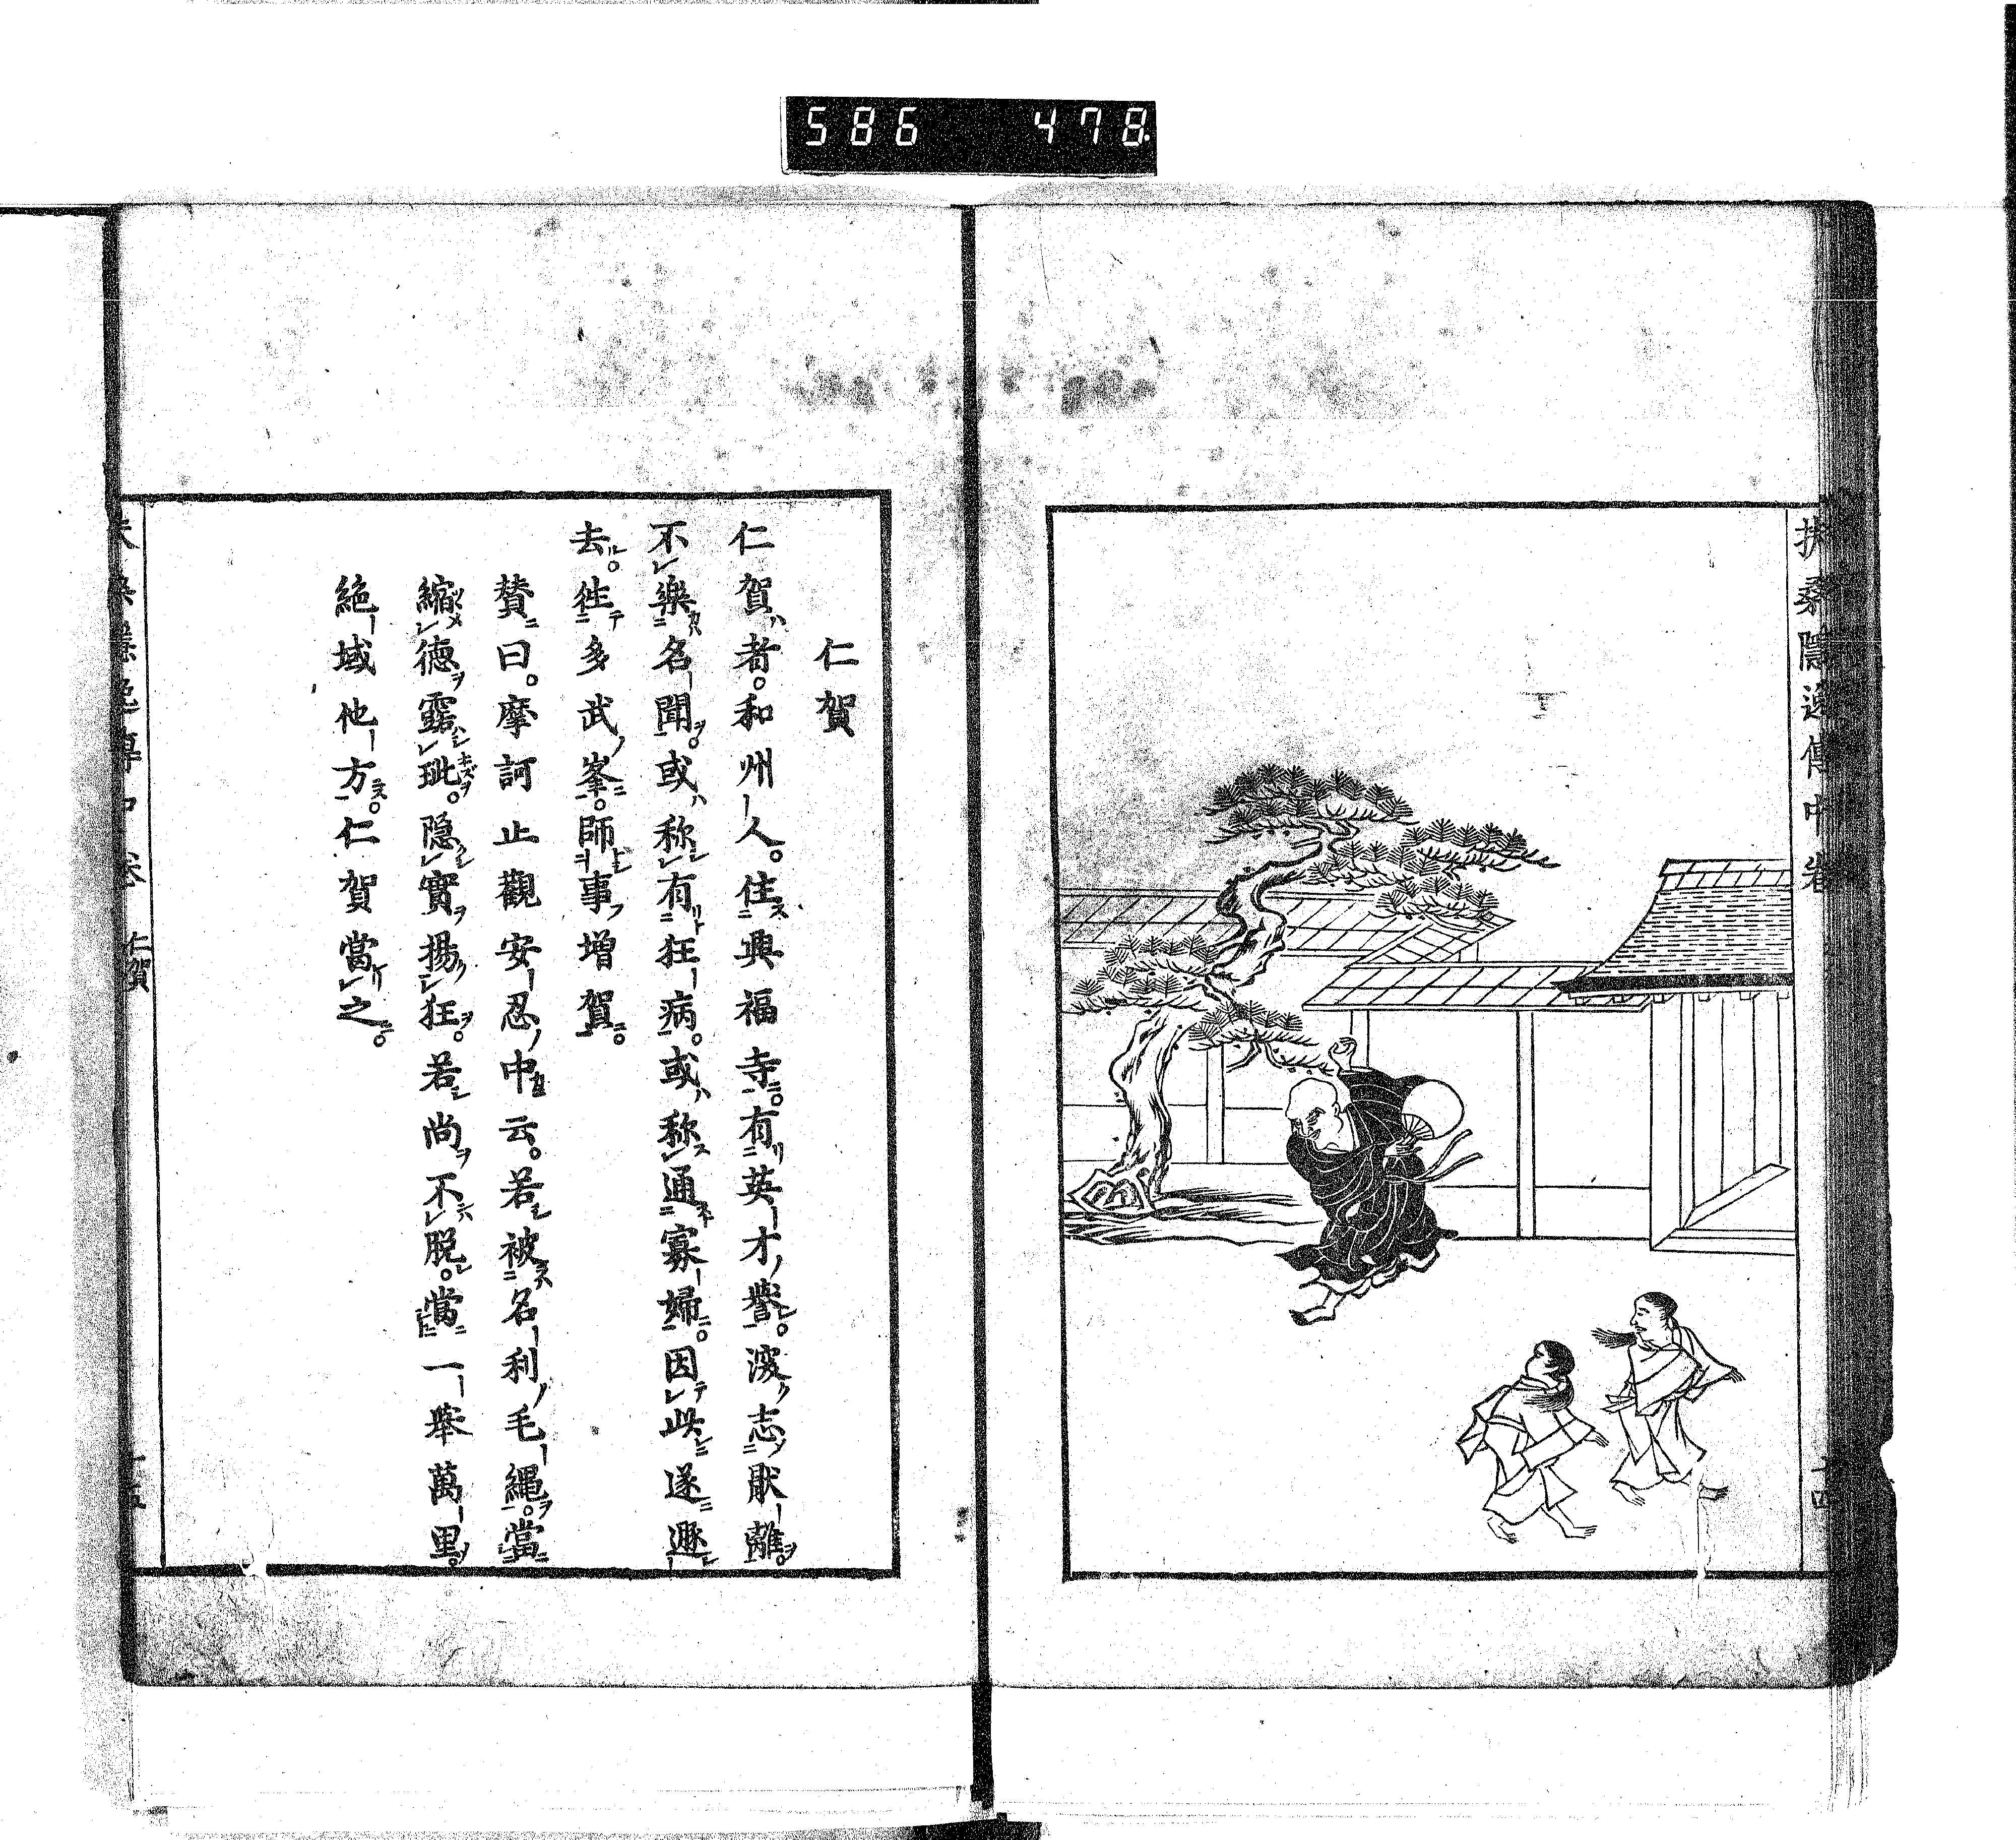 586 478
扶桑隠逸傳中巻
十四
仁賀
仁賀者。和州人。住興福寺。有英才譽。深志厭離。
不樂名聞。或称有狂病。或称通寡婦。因此遂遯
去。徃多武峯。師事増賀。
賛曰。摩訶止觀安忍中云。若被名利毛縄。當
縮德露玼。隠實揚狂。若尚不脱。當一擧萬里
絶域他方。仁賀當之。
仁賀